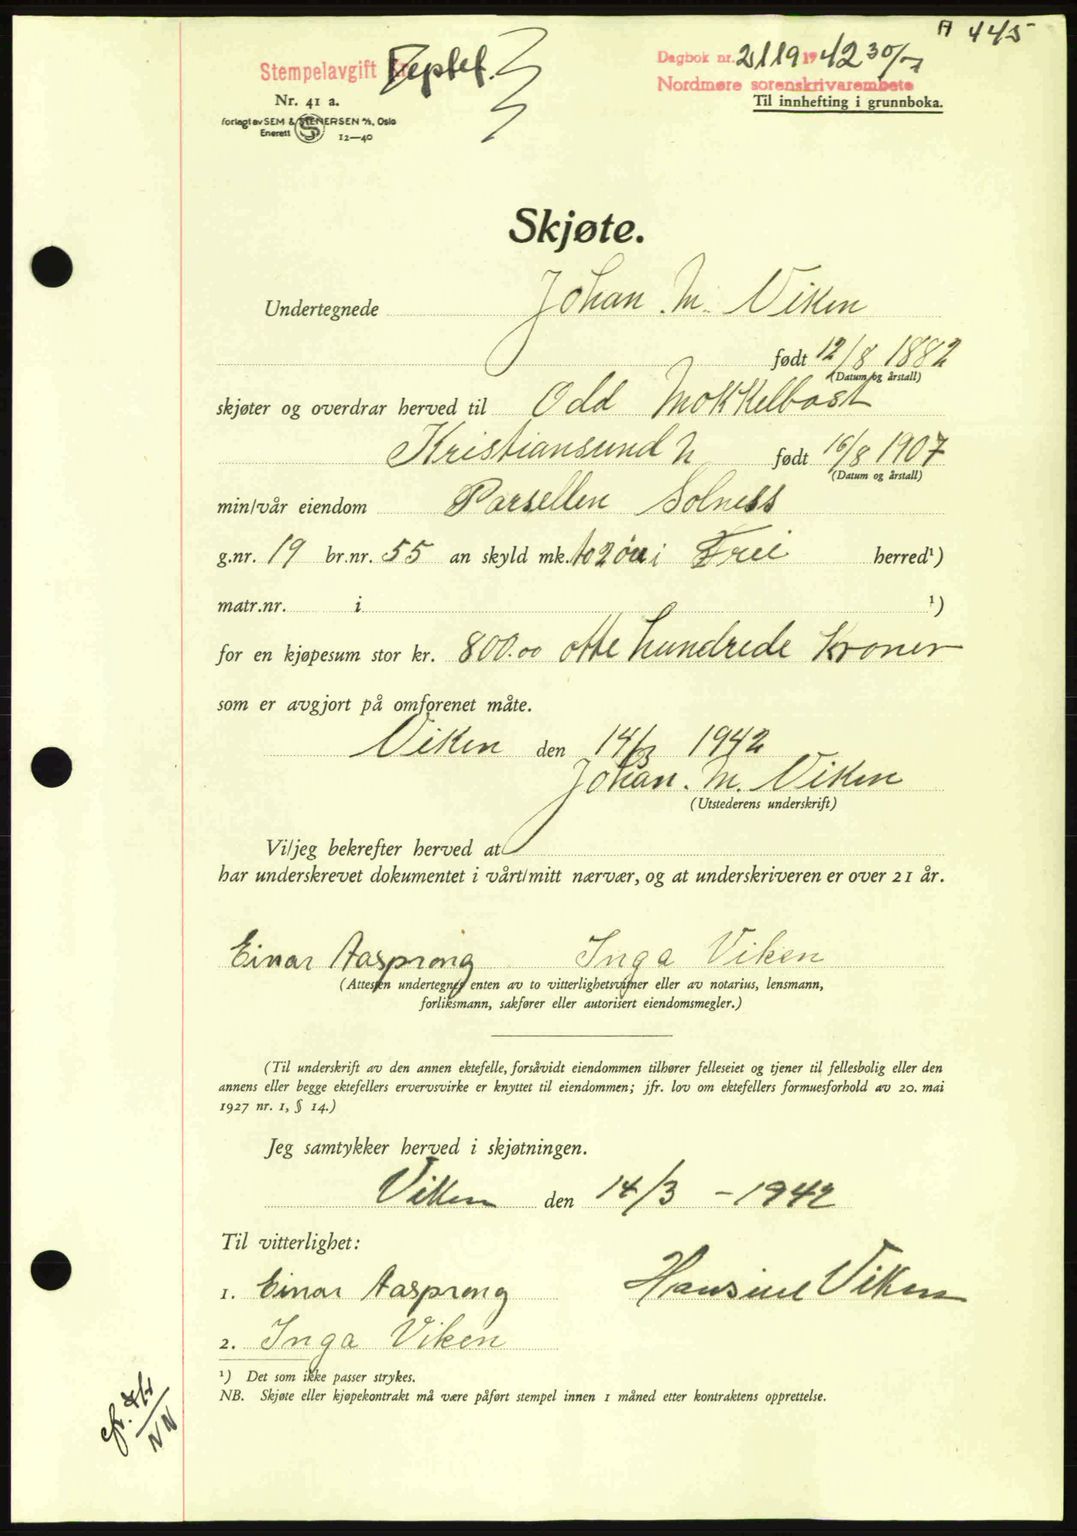 A 445
Stempelavgift Kr.
Dagbok nr. 2119 1942 30/7
Nordmøre sorenskrivarembete
Nr. 41 a.
Til innhefting i grunnboka.
forlagt av SEM & STENERSEN A/S, Oslo
Enerett 12—40
Skjøte.
Undertegnede Johan M. Viken
født 12/8 1882
(Datum og årstall)
skjøter og overdrar herved til Odd Mokkelbost
Kristiansund N født 16/8 1907
(Datum og årstall)
min/vår eiendom Parsellen Solness
g.nr. 19 br.nr. 55 an skyld mk. to 2 øre i Frei herred¹)
matr.nr. i ¹)
for en kjøpesum stor kr. 800.00 otte hundrede Kroner
som er avgjort på omforenet måte.
Viken den 14/3 1942
Johan. M. Viken
(Utstederens underskrift)
Vi/jeg bekrefter herved at
har underskrevet dokumentet i vårt/mitt nærvær, og at underskriveren er over 21 år.
Einar Aasprong Inga Viken
(Attesten undertegnes enten av to vitterlighetsvitner eller av notarius, lensmann,
forliksmann, sakfører eller autorisert eiendomsmegler.)
(Til underskrift av den annen ektefelle, forsåvidt eiendommen tilhører felleseiet og tjener til fellesbolig eller den
annens eller begge ektefellers ervervsvirke er knyttet til eiendommen; jfr. lov om ektefellers formuesforhold av 20. mai
1927 nr. 1, § 14.)
Jeg samtykker herved i skjøtningen.
Viken den 14/3 - 1942
Til vitterlighet:
1. Einar Aasprong Hansine Viken
2. Inga Viken
¹) Det som ikke passer strykes.
NB. Skjøte eller kjøpekontrakt må være påført stempel innen 1 måned etter kontraktens opprettelse.
NN